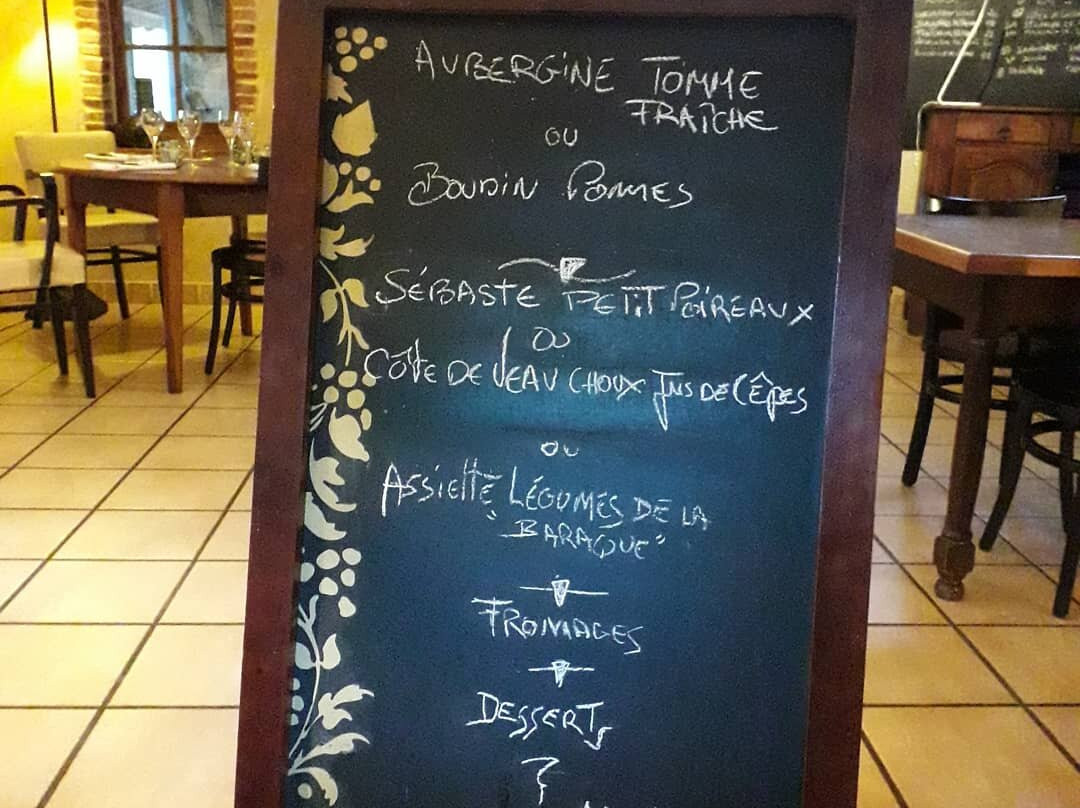 AUBERGINE TOMME
FRAÎCHE
OU
BOUDIN POMMES
SÉBASTE PETIT POIREAUX
OU
CÔTE DE VEAU CHOUX JUS DE CÊPES
OU
ASSIETTE LÉGUMES DE LA
"BARAQUE"
FROMAGES
DESSERTS